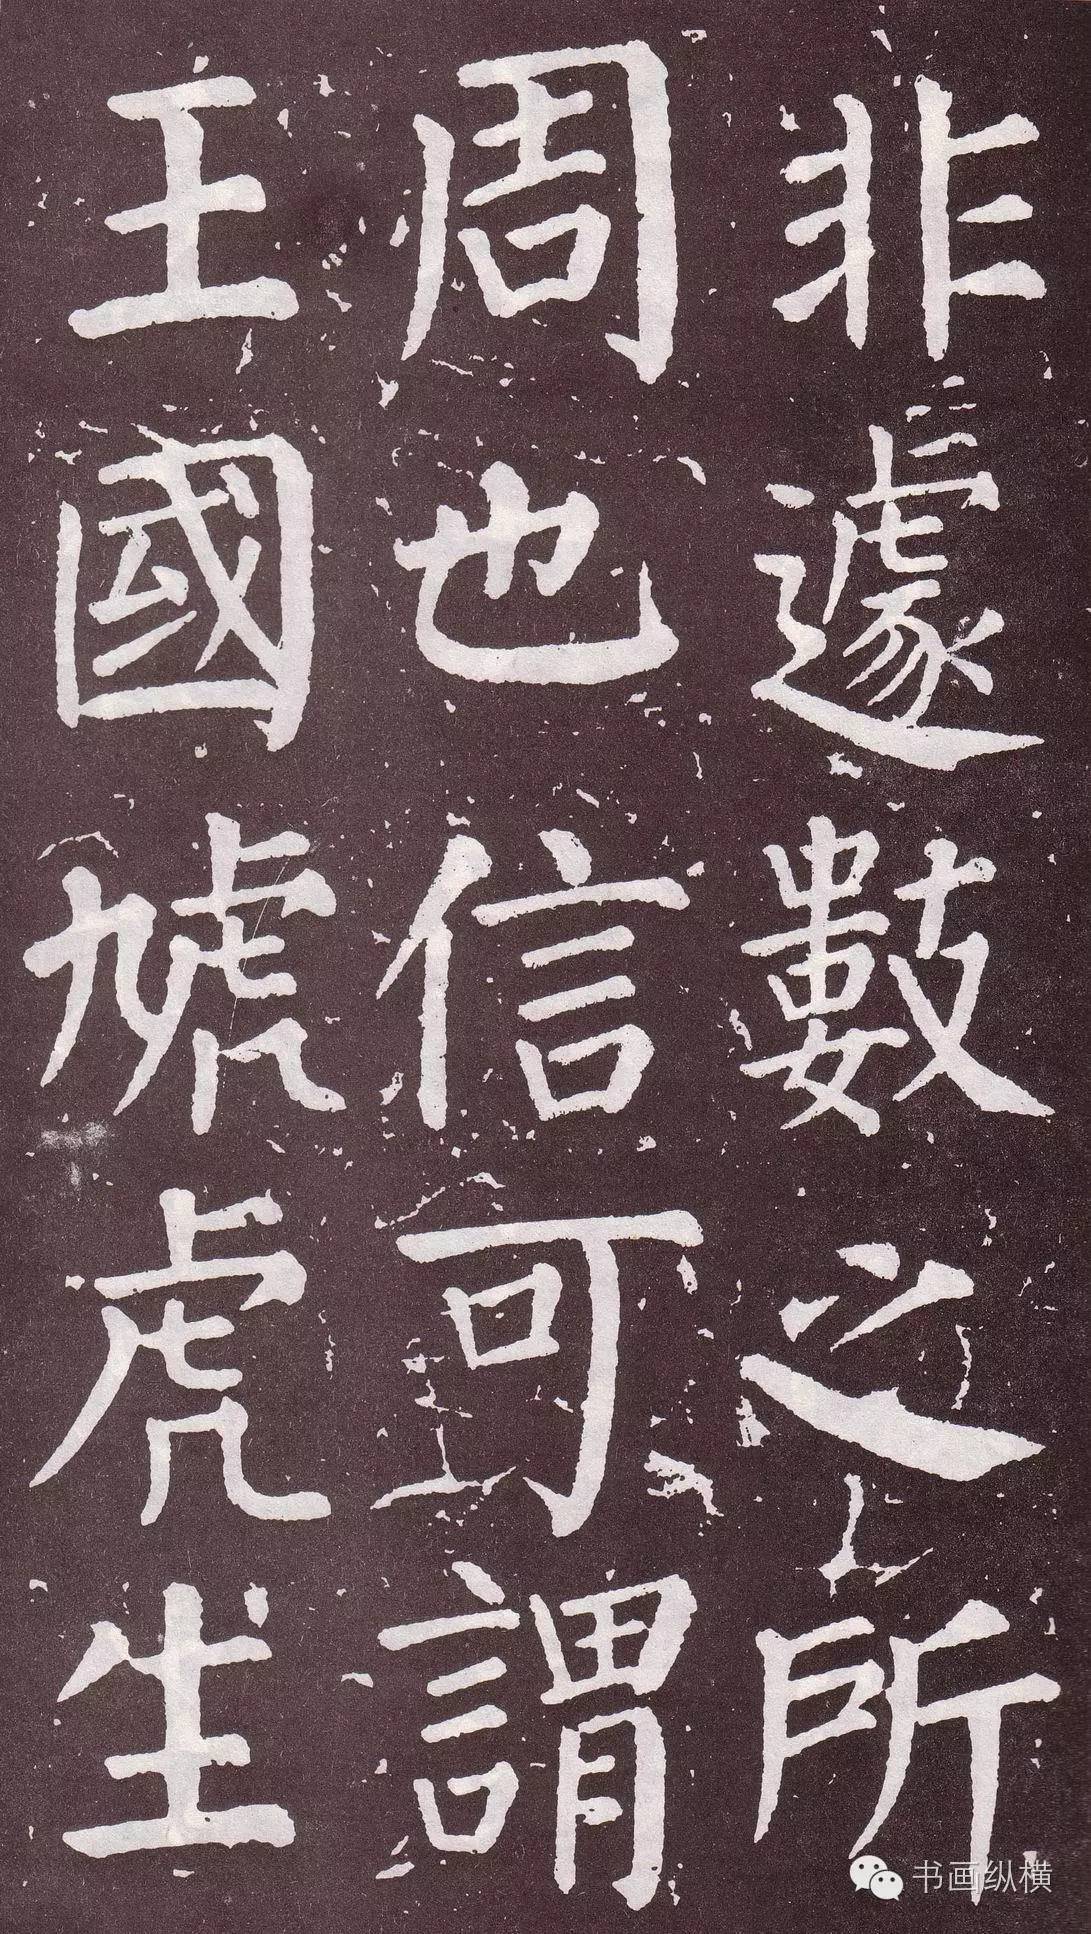 非遽數之所
周也信可謂
王國虓虎生
书画纵横